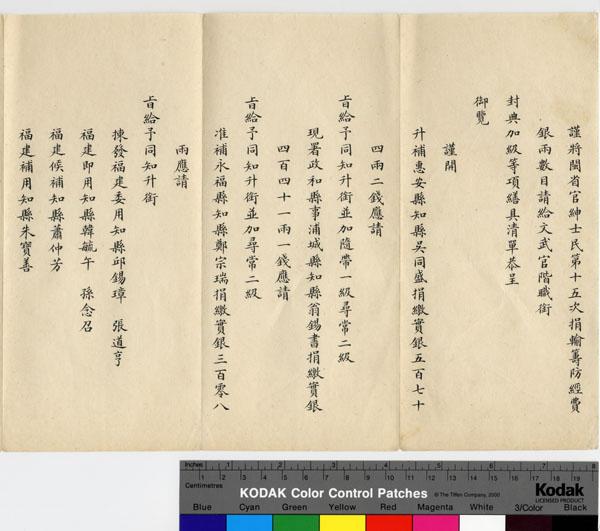 謹將閩省官紳士民第十五次捐輸籌防經費
銀兩數目請給文武官階職銜
封典加級等項繕具清單恭呈
御覽
謹開
升補惠安縣知縣吳同盛捐繳實銀五百七十
四兩二錢應請
旨給予同知升銜並加隨帶一級尋常二級
現署政和縣事浦城縣知縣翁錫書捐繳實銀
四百四十一兩一錢應請
旨給予同知升銜並加尋常二級
准補永福縣知縣鄭宗瑞捐繳實銀三百零八
兩應請
旨給予同知升銜
揀發福建委用知縣邱錫璋 張道亨
福建即用知縣韓毓午 孫念召
福建候補知縣蕭仲芳
福建補用知縣朱寶善
Inches 1 2 3 4 5 6 7 8
Centimetres 1 2 3 4 5 6 7 8 9 10 11 12 13 14 15 16 17 18 19
KODAK Color Control Patches © The Tiffen Company, 2000 Kodak
LICENSED PRODUCT
Blue Cyan Green Yellow Red Magenta White 3/Color Black